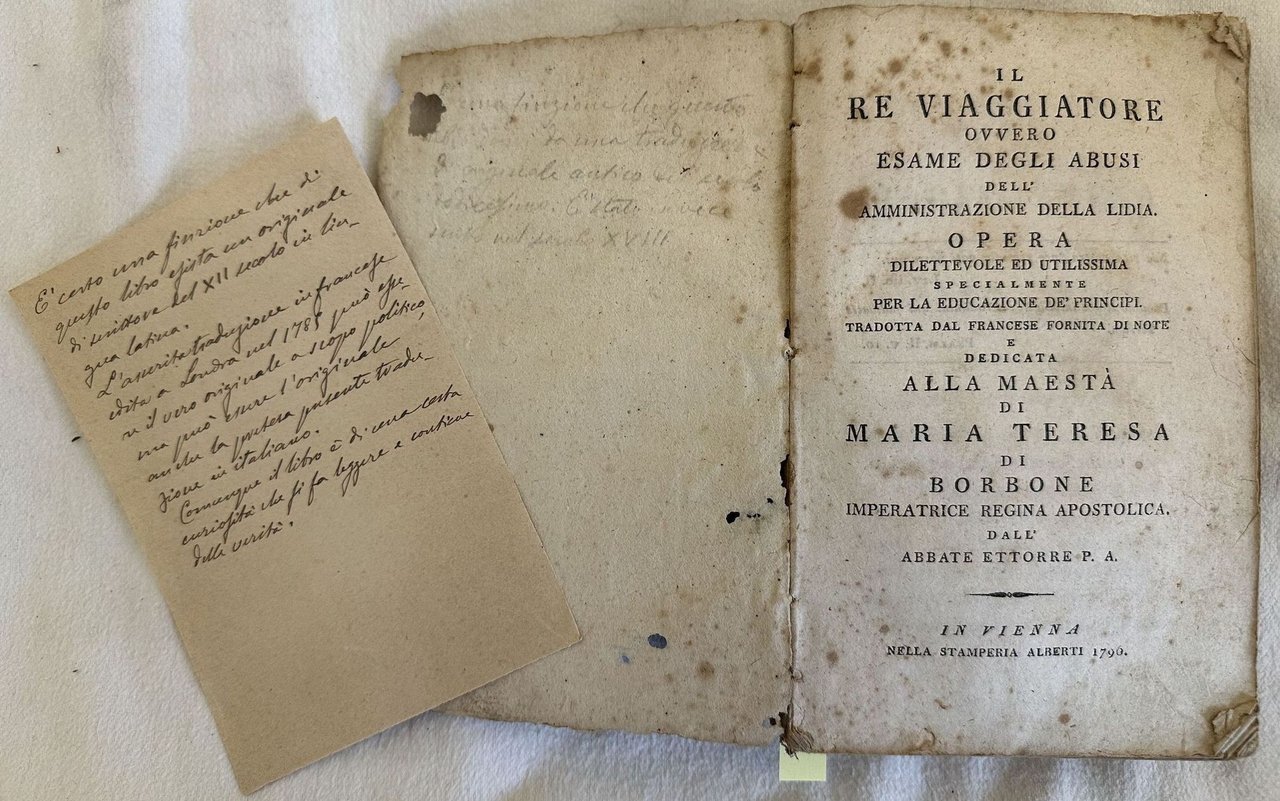 E' certo una finzione che di
questo libro esista un originale
di scrittore del XII secolo in lin-
gua latina.
L'asserita traduzione in francese
edita a Londra nel 1785 può esse-
re il vero originale a scopo politico,
ma può essere l'originale
anche la pretesa presente tradu-
zione in italiano.
Comunque il libro è di una certa
curiosità che si fa leggere e contiene
delle verità.
una finzione che questo
da una traduzione
originale antico
E' stato
nel secolo XVIII
IL
RE VIAGGIATORE
OVVERO
ESAME DEGLI ABUSI
DELL'
AMMINISTRAZIONE DELLA LIDIA.
OPERA
DILETTEVOLE ED UTILISSIMA
SPECIALMENTE
PER LA EDUCAZIONE DE' PRINCIPI.
TRADOTTA DAL FRANCESE FORNITA DI NOTE
E
DEDICATA
ALLA MAESTÀ
DI
MARIA TERESA
DI
BORBONE
IMPERATRICE REGINA APOSTOLICA.
DALL'
ABBATE ETTORRE P. A.
IN VIENNA
NELLA STAMPERIA ALBERTI 1796.